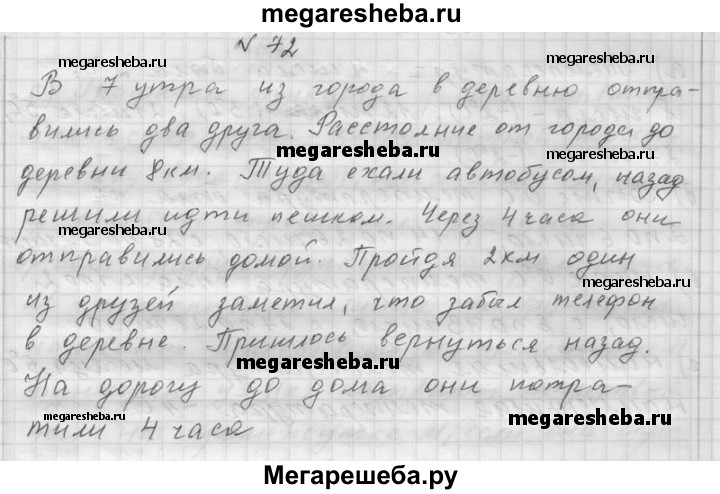 megaresheba.ru
N 72
megaresheba.ru megaresheba.ru
В 7 утра из города в деревню отпра-
вились два друга. Расстояние от города до
megaresheba.ru
деревни 8 км. Туда ехали автобусом, назад
решили идти пешком. Через 4 часа они
megaresheba.ru
отправились домой. Пройдя 2 км один
megaresheba.ru
из друзей заметил, что забыл телефон
в деревне. Пришлось вернуться назад.
megaresheba.ru
На дорогу до дома они потра-
megaresheba.ru megaresheba.ru
тили 4 часа
Мегарешеба.ру